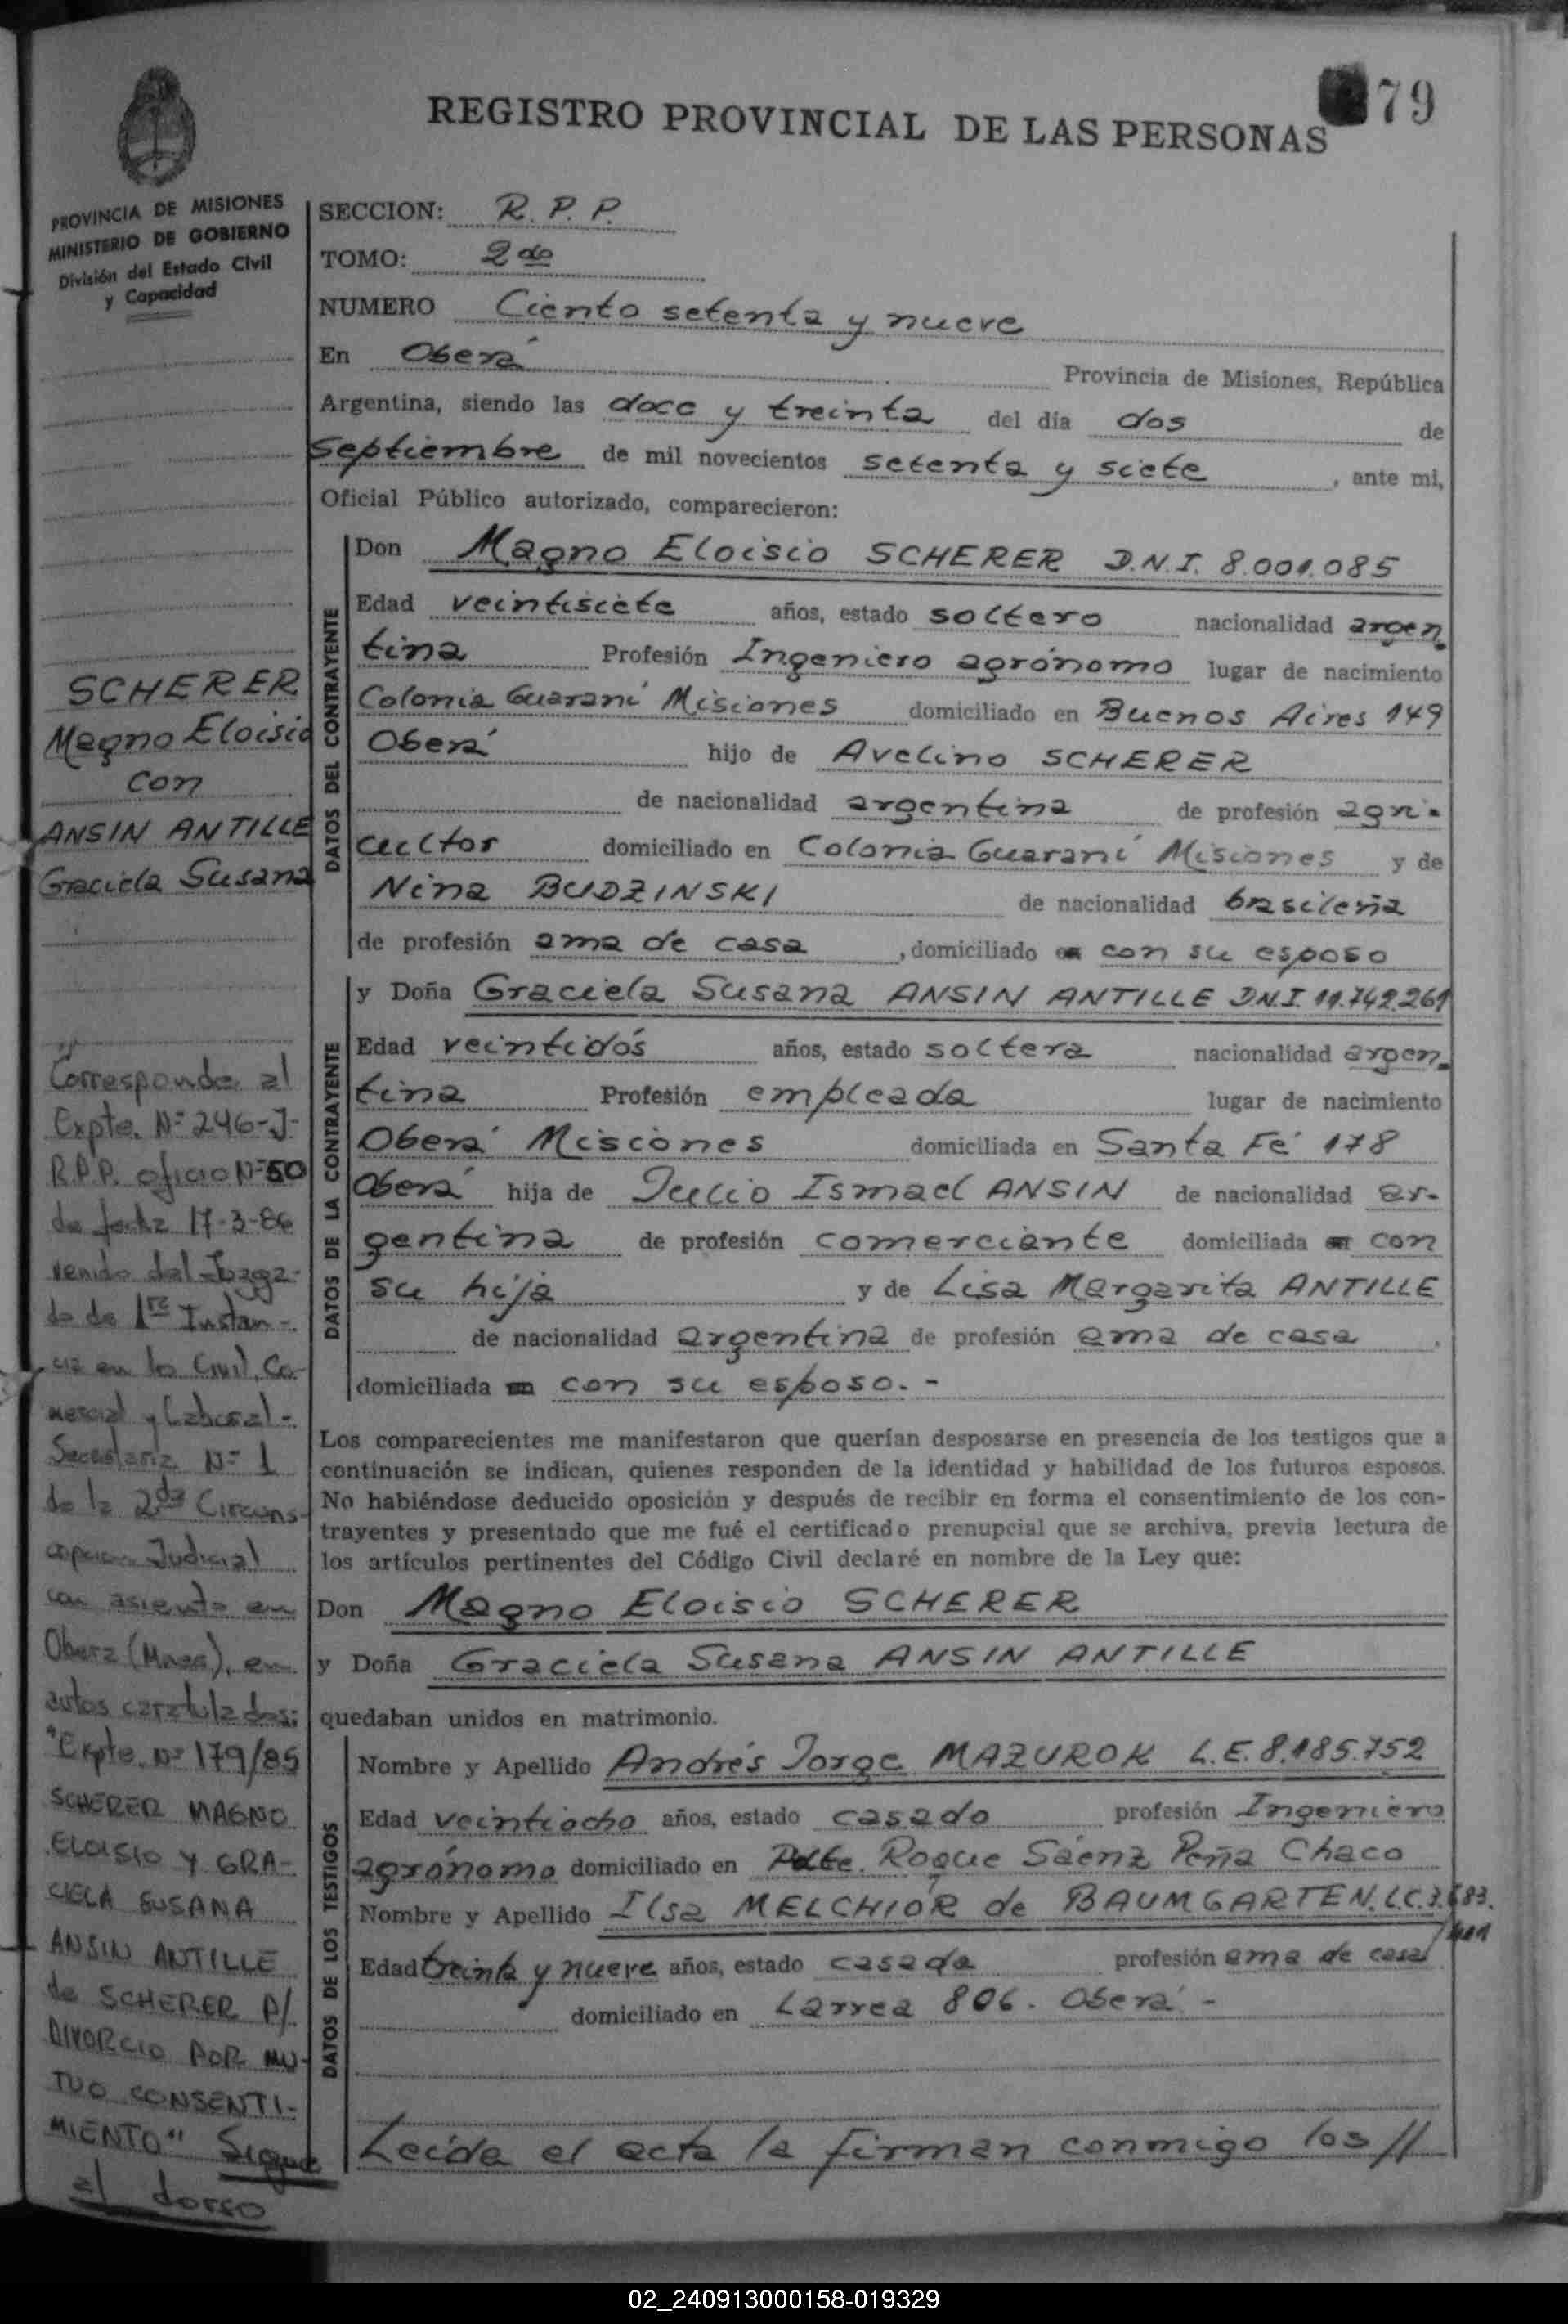 79
REGISTRO PROVINCIAL DE LAS PERSONAS
PROVINCIA DE MISIONES
MINISTERIO DE GOBIERNO
División del Estado Civil
y Capacidad
SECCION: R. P. P.
TOMO: 2do
NUMERO Ciento setenta y nueve
En Oberá Provincia de Misiones, República
Argentina, siendo las doce y treinta del día dos de
septiembre de mil novecientos setenta y siete, ante mi,
Oficial Público autorizado, comparecieron:
DATOS DEL CONTRAYENTE
Don Magno Eloisio SCHERER D.N.I. 8.001.085
Edad veintisiete años, estado soltero nacionalidad argen
tina Profesión Ingeniero agrónomo lugar de nacimiento
Colonia Guaraní Misiones domiciliado en Buenos Aires 149
Oberá hijo de Avelino SCHERER
de nacionalidad argentina de profesión agri-
cultor domiciliado en Colonia Guaraní Misiones y de
Nina BUDZINSKI de nacionalidad brasileña
de profesión ama de casa, domiciliado con su esposo
DATOS DE LA CONTRAYENTE
y Doña Graciela Susana ANSIN ANTILLE D.N.I. 11.742.261
Edad veintidós años, estado soltera nacionalidad argen-
tina Profesión empleada lugar de nacimiento
Oberá Misiones domiciliada en Santa Fé 178
Oberá hija de Julio Ismael ANSIN de nacionalidad ar-
gentina de profesión comerciante domiciliada con
su hija y de Lisa Margarita ANTILLE
de nacionalidad argentina de profesión ama de casa
domiciliada con su esposo.-
Los comparecientes me manifestaron que querían desposarse en presencia de los testigos que a
continuación se indican, quienes responden de la identidad y habilidad de los futuros esposos.
No habiéndose deducido oposición y después de recibir en forma el consentimiento de los con-
trayentes y presentado que me fué el certificado prenupcial que se archiva, previa lectura de
los artículos pertinentes del Código Civil declaré en nombre de la Ley que:
Don Magno Eloisio SCHERER
y Doña Graciela Susana ANSIN ANTILLE
quedaban unidos en matrimonio.
DATOS DE LOS TESTIGOS
Nombre y Apellido Andrés Jorge MAZUROK L.E. 8.185.752
Edad veintiocho años, estado casado profesión Ingeniero
agrónomo domiciliado en Pdte. Roque Sáenz Peña Chaco
Nombre y Apellido Ilsa MELCHIOR de BAUMGARTEN. L.C. 3.683.
Edad treinta y nueve años, estado casada profesión ama de casa
domiciliado en Larrea 806. Oberá -
Leída el acta la firman conmigo los //
SCHERER
Magno Eloisio
con
ANSIN ANTILLE
Graciela Susana
Corresponde al
Expte. Nº 246-J-
R.P.P. oficio Nº 50
de fecha 17-3-86
venido del Juzga-
do de 1ra Instan-
cia en lo Civil, Co-
mercial y Laboral-
Secretaria Nº 1
de la 2da Circuns-
cripcion Judicial
con asiento en
Obera (Mnes), en
autos caratulados:
"Expte. Nº 179/85
SCHERER MAGNO
ELOISIO Y GRA-
CIELA SUSANA
ANSIN ANTILLE
de SCHERER P/
DIVORCIO POR MU-
TUO CONSENTI-
MIENTO" Sigue
al dorso
02_240913000158-019329